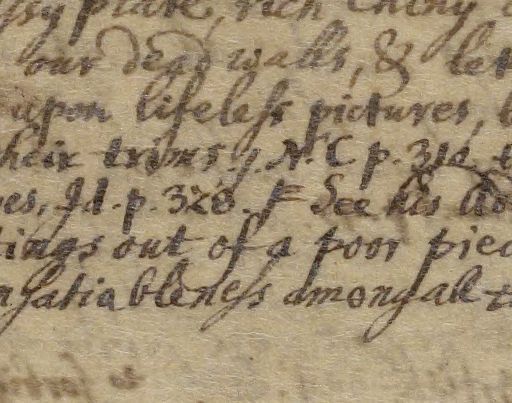 plate, rich
our dead walls, & let
upon lifeless pictures,
their tribus. N. C p. 314.
Id. p. 328. See his
tings out of a poor piec
nsatiableness among all t